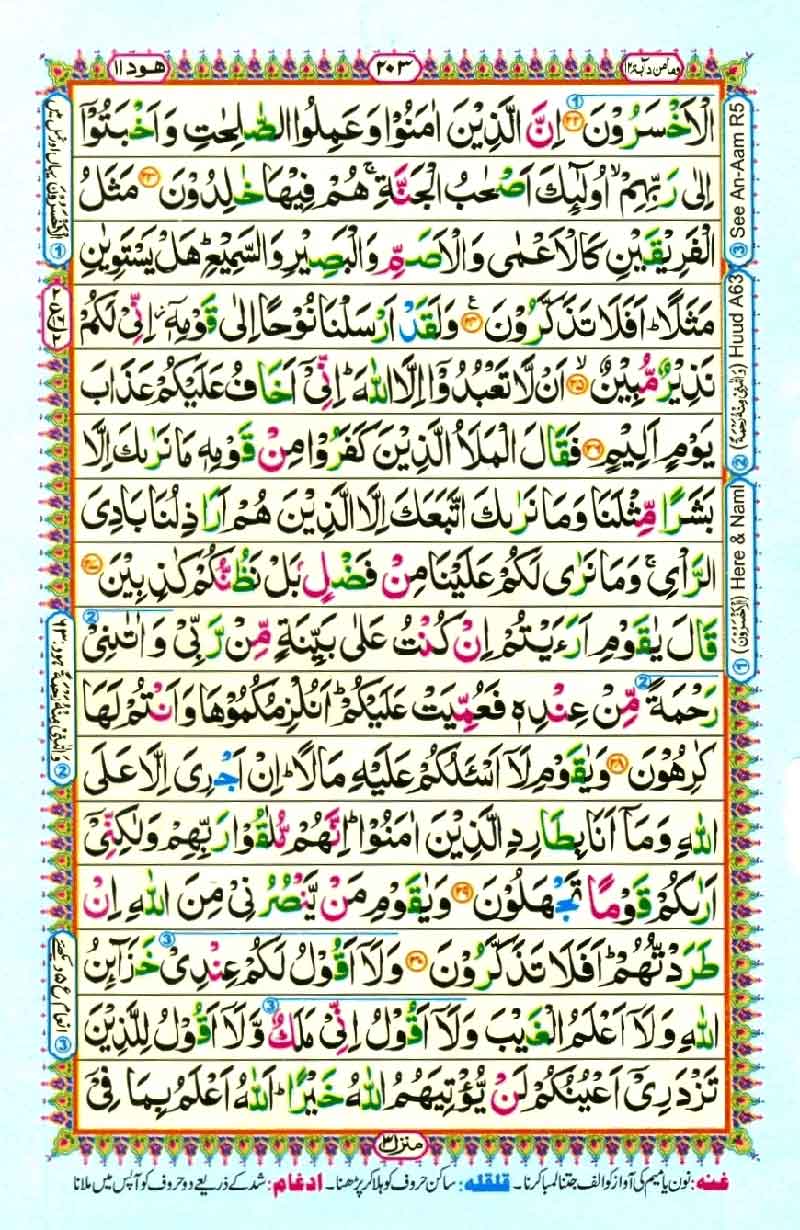 وما من دآبۃ ۱۲
۲۰۳
ھود ۱۱
الۡاَخۡسَرُوۡنَ ﴿۲۲﴾ اِنَّ الَّذِيۡنَ اٰمَنُوۡا وَعَمِلُوا الصّٰلِحٰتِ وَاَخۡبَتُوۡۤا
اِلٰى رَبِّهِمۡۙ اُولٰٓئِكَ اَصۡحٰبُ الۡجَنَّةِۚ هُمۡ فِيۡهَا خٰلِدُوۡنَ ﴿۲۳﴾ مَثَلُ
الۡفَرِيۡقَيۡنِ كَالۡاَعۡمٰى وَالۡاَصَمِّ وَالۡبَصِيۡرِ وَالسَّمِيۡعِؕ هَلۡ يَسۡتَوِيٰنِ
مَثَلًاؕ اَفَلَا تَذَكَّرُوۡنَ ﴿۲۴﴾ وَلَقَدۡ اَرۡسَلۡنَا نُوۡحًا اِلٰى قَوۡمِهٖۤ اِنِّىۡ لَكُمۡ
نَذِيۡرٌ مُّبِيۡنٌۙ ﴿۲۵﴾ اَنۡ لَّا تَعۡبُدُوۡۤا اِلَّا اللّٰهَؕ اِنِّىۡۤ اَخَافُ عَلَيۡكُمۡ عَذَابَ
يَوۡمٍ اَلِيۡمٍ ﴿۲۶﴾ فَقَالَ الۡمَلَاُ الَّذِيۡنَ كَفَرُوۡا مِنۡ قَوۡمِهٖ مَا نَرٰٮكَ اِلَّا
بَشَرًا مِّثۡلَنَا وَمَا نَرٰٮكَ اتَّبَعَكَ اِلَّا الَّذِيۡنَ هُمۡ اَرَاذِلُنَا بَادِىَ
الرَّاۡىِۚ وَمَا نَرٰى لَكُمۡ عَلَيۡنَا مِنۡ فَضۡلٍۢ بَلۡ نَظُنُّكُمۡ كٰذِبِيۡنَ ﴿۲۷﴾
قَالَ يٰقَوۡمِ اَرَءَيۡتُمۡ اِنۡ كُنۡتُ عَلٰى بَيِّنَةٍ مِّنۡ رَّبِّىۡ وَاٰتٰٮنِىۡ
رَحۡمَةً مِّنۡ عِنۡدِهٖ فَعُمِّيَتۡ عَلَيۡكُمۡؕ اَنُلۡزِمُكُمُوۡهَا وَاَنۡتُمۡ لَهَا
كٰرِهُوۡنَ ﴿۲۸﴾ وَيٰقَوۡمِ لَاۤ اَسۡــَٔلُكُمۡ عَلَيۡهِ مَالًاؕ اِنۡ اَجۡرِىَ اِلَّا عَلَى
اللّٰهِ وَمَاۤ اَنَا بِطَارِدِ الَّذِيۡنَ اٰمَنُوۡاؕ اِنَّهُمۡ مُّلٰقُوۡا رَبِّهِمۡ وَلٰكِنِّىۡۤ
اَرٰٮكُمۡ قَوۡمًا تَجۡهَلُوۡنَ ﴿۲۹﴾ وَيٰقَوۡمِ مَنۡ يَّنۡصُرُنِىۡ مِنَ اللّٰهِ اِنۡ
طَرَدتُّهُمۡؕ اَفَلَا تَذَكَّرُوۡنَ ﴿۳۰﴾ وَلَاۤ اَقُوۡلُ لَكُمۡ عِنۡدِىۡ خَزَآٮِٕنُ
اللّٰهِ وَلَاۤ اَعۡلَمُ الۡغَيۡبَ وَلَاۤ اَقُوۡلُ اِنِّىۡ مَلَكٌ وَّلَاۤ اَقُوۡلُ لِلَّذِيۡنَ
تَزۡدَرِىۡۤ اَعۡيُنُكُمۡ لَنۡ يُّؤۡتِيَهُمُ اللّٰهُ خَيۡرًاؕ اَللّٰهُ اَعۡلَمُ بِمَا فِىۡۤ
منزل ۳
① (اَلۡاَخۡسَرُوۡنَ) Here & Naml
② (وَاٰتٰٮنِىۡ مِنۡهُ رَحۡمَةً) Huud A63
③ See An-Aam R5
① اَلۡاَخۡسَرُوۡنَ یہاں اور نمل میں
② وَاٰتٰٮنِىۡ مِنۡهُ رَحۡمَةً ہود ۶۳
③ انعام ع ۵ دیکھئے
غنہ: نون یا میم کی آواز کو الف جتنا لمبا کرنا۔ قلقلہ: ساکن حروف کو ہلا کر پڑھنا۔ ادغام: شد کے ذریعے دو حروف کو آپس میں ملانا